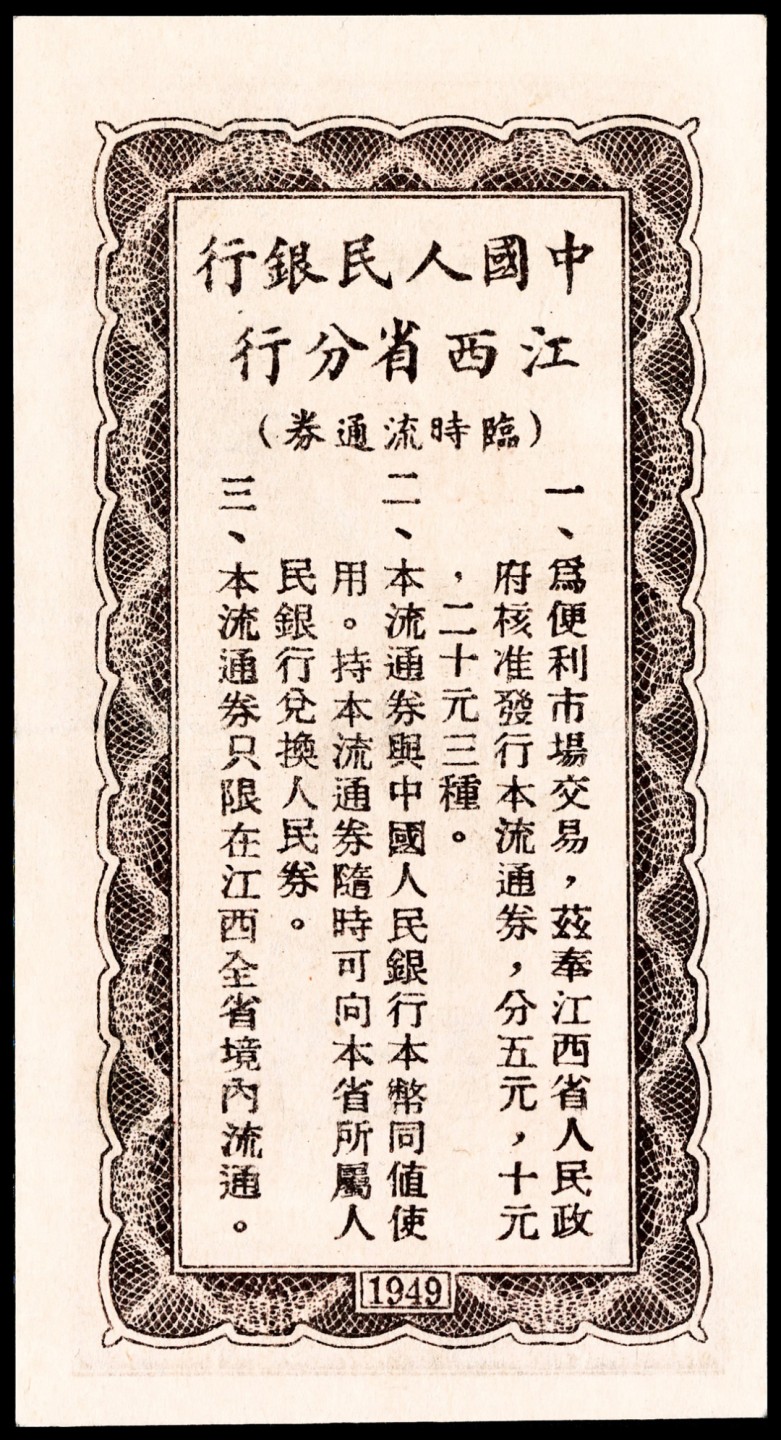 中國人民銀行
江西省分行
(臨時流通券)
一、爲便利市場交易，茲奉江西省人民政
府核准發行本流通券，分五元，十元
，二十元三種。
二、本流通券與中國人民銀行本幣同值使
用。持本流通券隨時可向本省所屬人
民銀行兌換人民券。
三、本流通券只限在江西全省境內流通。
1949